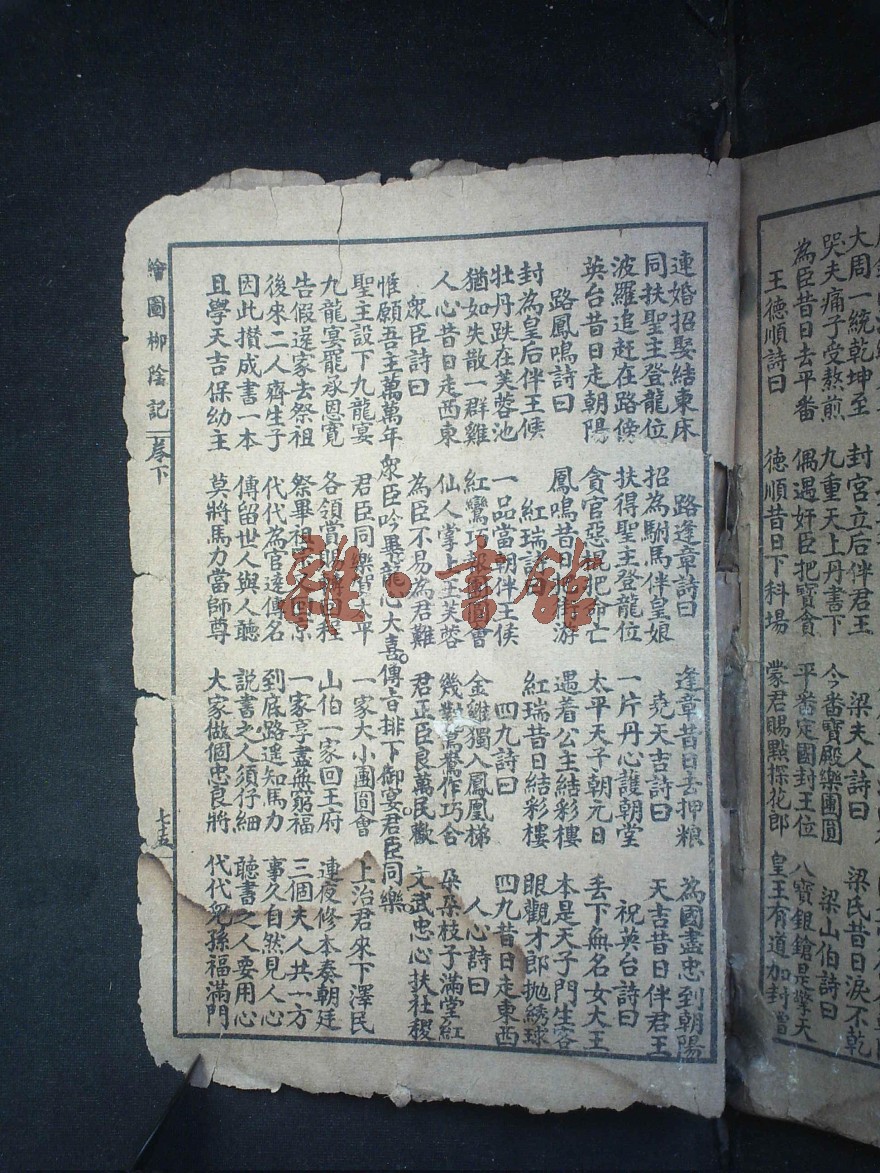 大周一統乾坤至 封宮立后伴君王 梁夫人詩曰 梁氏昔日淚不乾
哭夫痛子受熬煎 九重天上丹書下 今番寶殿樂團圓 梁山伯詩曰
為臣昔日去平番 偶遇奸臣把寶貪 平番定國封王位 八寶銀鎗是擎天
王德順詩曰 德順昔日下科場 蒙君賜點探花郎 皇王有道加封贈
連婚招娶結東床 路逢章詩曰 逢章昔日去押粮 為國盡忠到朝陽
同扶聖主登龍位 招為駙馬伴皇娘 堯天吉詩曰 天吉昔日伴君王
波羅追赶在路傍 扶得聖主登龍位 一片丹心護朝堂 祝英台詩曰
英台昔日走朝陽 貪官惡棍把命亡 太平天子朝元日 丟下無名女大王
路鳳鳴詩曰 鳳鳴昔日把街游 遇着公主結彩樓 本是天子門生客
封為皇后伴王侯 紅瑞詩曰 紅瑞昔日結彩樓 眼觀才郎抛綉球
牡丹跌在芙蓉池 一品當朝伴王侯 四九詩曰 四九昔日走東西
猶如失散一群雞 紅鸞巧報團圓會 金雞獨入鳳凰梯 人心詩曰
人心昔日走西東 仙人掌上玉芙蓉 幾對鴛鴦作巧合 朶朶枝子滿堂紅
衆臣詩曰 為臣不易為君難 君正臣良萬民歡 文武忠心扶社稷
惟願吾主萬萬年 衆臣吟畢龍心大喜。傳旨排下御宴。君臣同樂
聖主設下九龍宴 君臣同樂賀太平 一家大小團圓會 上治君來下澤民
九龍宴罷承恩寬 各領賞賜轉回程 山伯一家回王府 連夜修本奏朝廷
告假還家去祭祖 祭畢祖宗回京 一家享盡無窮福 三個夫人共一方
後來二人齊生子 代代為官遠傳名 到底路遥知馬力 事久自然見人心
因此攅成書一本 傳留世人與人聽 説書之人須仔細 聽書之人要用心
且學天吉保幼主 莫將馬力當師尊 大家做個忠良將 代代兒孫福滿門
繪圖柳陰記 卷下 七十五
雜·書舘